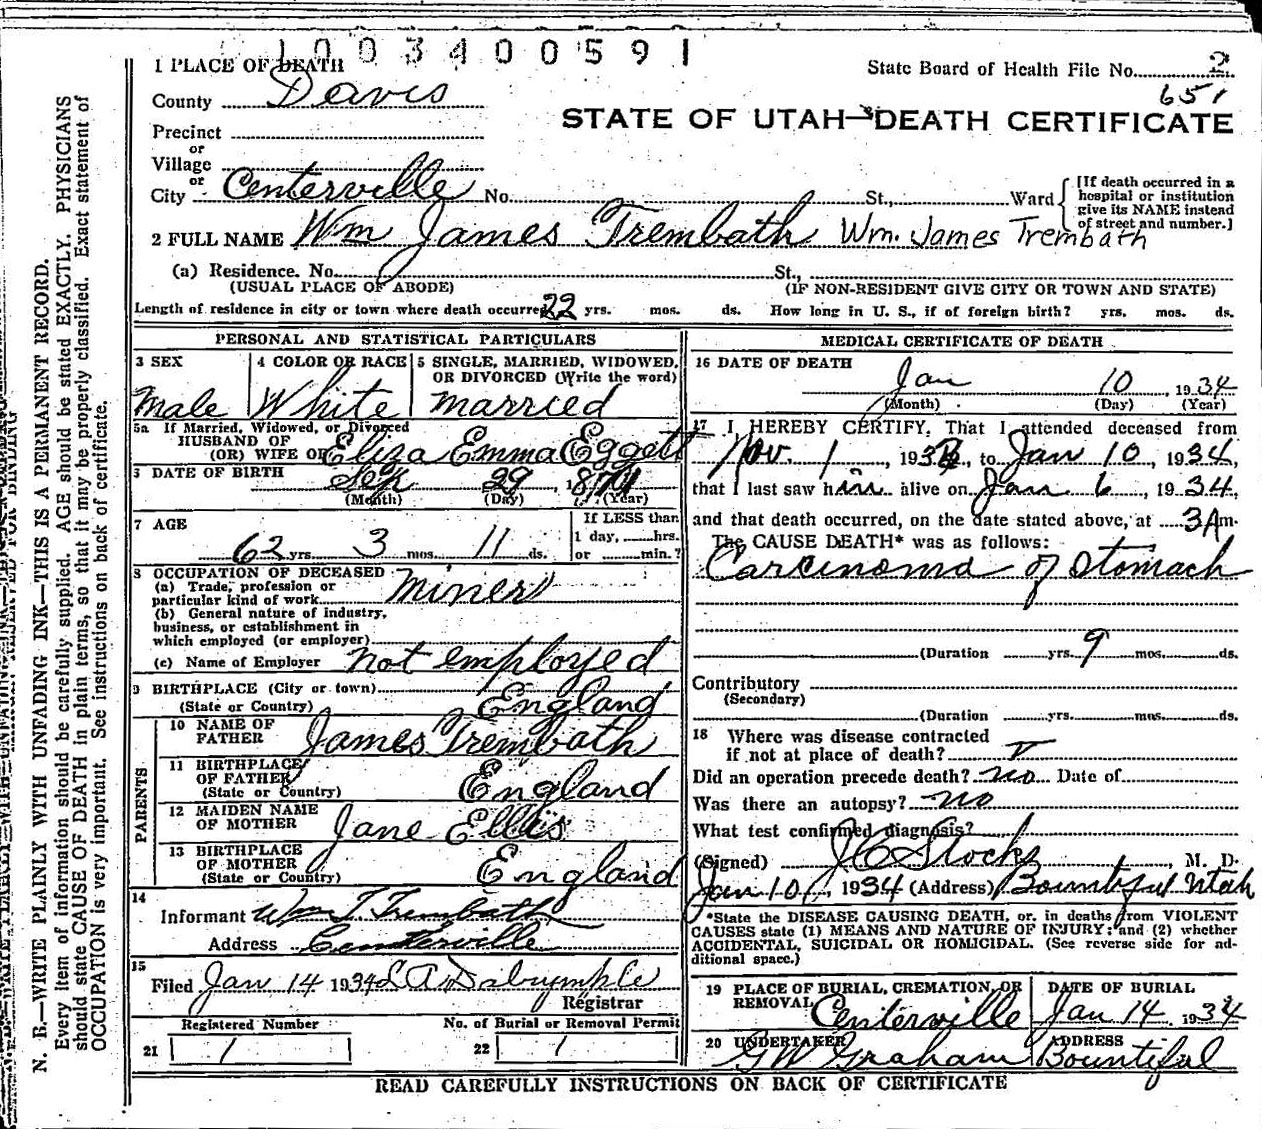 1003400591
1 PLACE OF DEATH
State Board of Health File No. 2
651
County Davis
STATE OF UTAH—DEATH CERTIFICATE
Precinct
or
Village
or
City Centerville No. St., Ward
[If death occurred in a
hospital or institution
give its NAME instead
of street and number.]
2 FULL NAME Wm James Trembath Wm. James Trembath
(a) Residence. No. St.,
(USUAL PLACE OF ABODE) (IF NON-RESIDENT GIVE CITY OR TOWN AND STATE)
Length of residence in city or town where death occurred 22 yrs. mos. ds. How long in U. S., if of foreign birth? yrs. mos. ds.
PERSONAL AND STATISTICAL PARTICULARS
3 SEX 4 COLOR OR RACE 5 SINGLE, MARRIED, WIDOWED,
OR DIVORCED (Write the word)
Male White married
5a If Married, Widowed, or Divorced
HUSBAND OF
(OR) WIFE OF Eliza Emma Eggett
DATE OF BIRTH Sep 29
(Month) (Day) (Year)
7 AGE If LESS than
1 day, hrs.
62 yrs. 3 mos. 11 ds. or min.?
8 OCCUPATION OF DECEASED
(a) Trade, profession or
particular kind of work miner
(b) General nature of industry,
business, or establishment in
which employed (or employer)
(c) Name of Employer not employed
9 BIRTHPLACE (City or town)
(State or Country) England
PARENTS
10 NAME OF
FATHER James Trembath
11 BIRTHPLACE
OF FATHER
(State or Country) England
12 MAIDEN NAME
OF MOTHER Jane Ellis
13 BIRTHPLACE
OF MOTHER
(State or Country) England
14
Informant Wm J. Trembath
Address Centerville
15
Filed Jan 14 1934 L A Dalrymple
Registrar
Registered Number No. of Burial or Removal Permit
21 1 22 1
MEDICAL CERTIFICATE OF DEATH
16 DATE OF DEATH
Jan 10, 1934
(Month) (Day) (Year)
17 I HEREBY CERTIFY, That I attended deceased from
Nov. 1, 193 , to Jan 10, 1934,
that I last saw him alive on Jan 6, 1934,
and that death occurred, on the date stated above, at 3 A m.
The CAUSE DEATH* was as follows:
Carcinoma of Stomach
(Duration yrs. 9 mos. ds.
Contributory
(Secondary)
(Duration yrs. mos. ds.
18 Where was disease contracted
if not at place of death?
Did an operation precede death? no Date of
Was there an autopsy? no
What test confirmed diagnosis?
(Signed) J C Stocks, M. D.
Jan 10, 1934 (Address) Bountiful Utah
*State the DISEASE CAUSING DEATH, or. in deaths from VIOLENT
CAUSES state (1) MEANS AND NATURE OF INJURY; and (2) whether
ACCIDENTAL, SUICIDAL OR HOMICIDAL. (See reverse side for ad-
ditional space.)
19 PLACE OF BURIAL, CREMATION, OR DATE OF BURIAL
REMOVAL Centerville Jan 14, 1934
20 UNDERTAKER ADDRESS
G W Graham Bountiful
READ CAREFULLY INSTRUCTIONS ON BACK OF CERTIFICATE
N. B.—WRITE PLAINLY WITH UNFADING INK—THIS IS A PERMANENT RECORD.
Every item of information should be carefully supplied. AGE should be stated EXACTLY. PHYSICIANS
should state CAUSE OF DEATH in plain terms, so that it may be properly classified. Exact statement of
OCCUPATION is very important. See instructions on back of certificate.